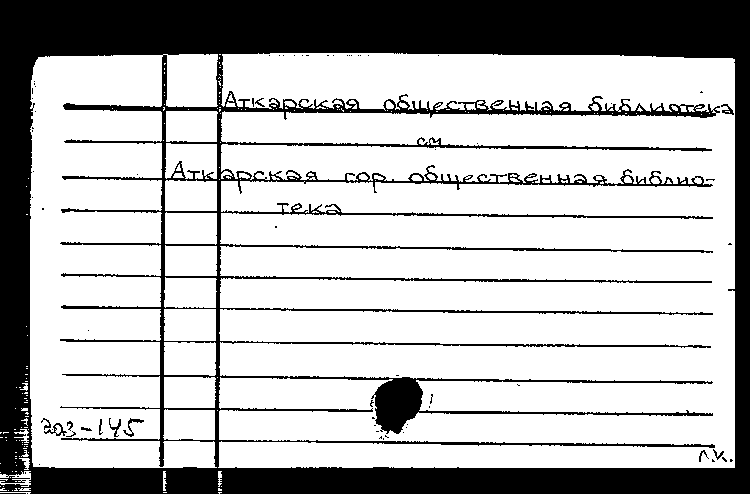 Аткарская общественная библиотека
см.
Аткарская гор. общественная библио-
тека
203-145
Л.К.